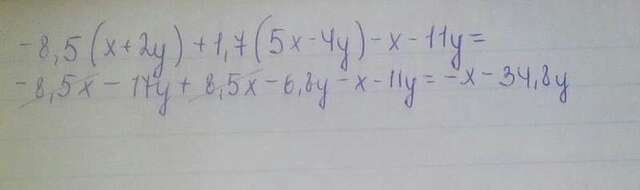 -8,5(x+2y)+1,7(5x-4y)-x-11y=
-8,5x-17y+8,5x-6,8y-x-11y=-x-34,8y